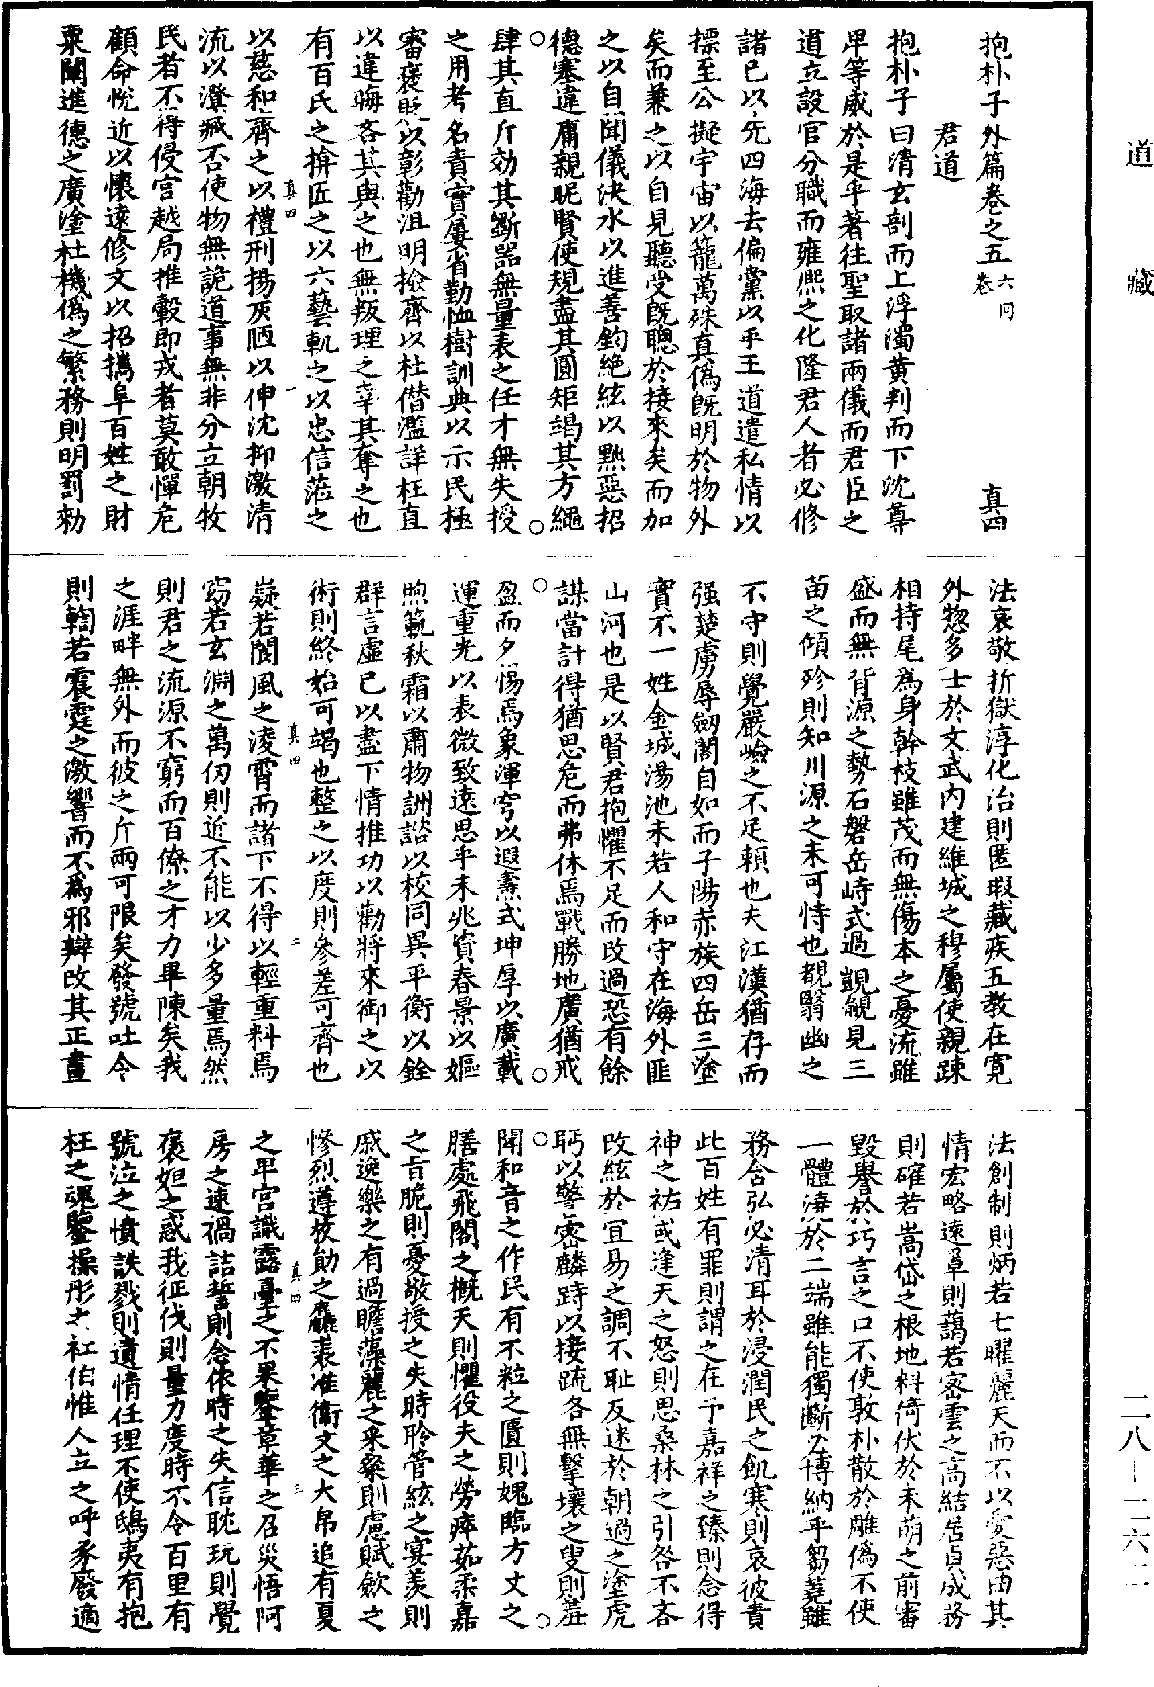 道藏
抱朴子外篇卷之五 六同卷 真四
君道
抱朴子曰清玄剖而上浮濁黃判而下沈尊
卑等威於是乎著往聖取諸兩儀而君臣之
道立設官分職而雍熙之化隆君人者必修
諸己以先四海去偏黨以平王道遣私情以
摽至公擬宇宙以籠萬殊真偽既明於物外
矣而兼之以自見聽受既聰於接來矣而加
之以自聞儀決水以進善鈞絶絃以黜惡招
德塞違庸親昵賢使規盡其圓矩竭其方繩
肆其直斤効其斲器無量表之任才無失授
之用考名責實屢省勤恤樹訓典以示民極
審褒貶以彰勸沮明撿齊以杜僭濫詳枉直
以違晦吝其與之也無叛理之幸其奪之也
有百氏之掩匠之以六藝軌之以忠信莅之
真四 一
以慈和齊之以禮刑揚灰陋以伸沈抑激清
流以澄臧否使物無詭道事無非分立朝牧
民者不得侵官越局推轂即戎者莫敢憚危
顧命悅近以懷遠修文以招攜阜百姓之財
粟闡進德之廣塗杜機偽之繁務則明罰勑
法哀敬折獄淳化洽則匿瑕藏疾五教在寬
外惣多士於文武內建維城之穆屬使親疎
相持尾為身幹枝雖茂而無傷本之憂流雖
盛而無背源之勢石磐岳峙式遏覬覦見三
苗之傾殄則知川源之未可恃也覩翳幽之
不守則覺嚴嶮之不足賴也夫江漢猶存而
强楚虜辱劒閣自如而子陽赤族四岳三塗
實不一姓金城湯池未若人和守在海外匪
山河也是以賢君抱懼不足而改過恐有餘
謀當計得猶思危而弗休焉戰勝地廣猶戒
盈而夕惕焉象渾穹以遐燾式坤厚以廣載
運重光以表微致遠思乎未兆資春景以嫗
煦範秋霜以肅物詶諮以校同異平衡以銓
群言虛己以盡下情推功以勸將來御之以
術則終始可竭也整之以度則參差可齊也
真四 二
嶷若閬風之凌霄而諸下不得以輕重料焉
窈若玄淵之萬仞則近不能以少多量焉然
則君之流源不窮而百僚之才力畢陳矣我
之涯畔無外而彼之斤兩可限矣發號吐令
則輷若震霆之激響而不為邪辯改其正畫
法創制則炳若七曜麗天而不以愛惡曲其
情宏略遠罩則藹若密雲之高結居貞成務
則確若嵩岱之根地料倚伏於未萌之前審
毀譽於巧言之口不使敦朴散於雕偽不使
一體澆於二端雖能獨斷必博納乎芻蕘雖
務含弘必清耳於浸潤民之飢寒則哀彼責
此百姓有罪則謂之在予嘉祥之臻則念得
神之祐或逢天之怒則思桑林之引咎不吝
改絃於宜易之調不恥反迷於朝過之塗虎
眄以警密麟跱以接疏各無擊壤之叟則羞
聞和音之作民有不粒之匱則媿臨方丈之
膳處飛閣之概天則懼役夫之勞瘁茹柔嘉
之旨脆則憂敬授之失時聆管絃之宴羨則
戚逸樂之有過瞻藻麗之采粲則慮賦歛之
慘烈遵放勛之麤裘准衞文之大帛追有夏
真四 三
之卑宮識露臺之不果鑒章華之召災悟阿
房之速禍詰誓則念依時之失信耽玩則覺
褒妲之惑我征伐則量力度時不令百里有
號泣之憤誅戮則遺情任理不使鴟夷有抱
枉之魂鑒操彤之社伯惟人立之呼豕廢適
二八-二六一